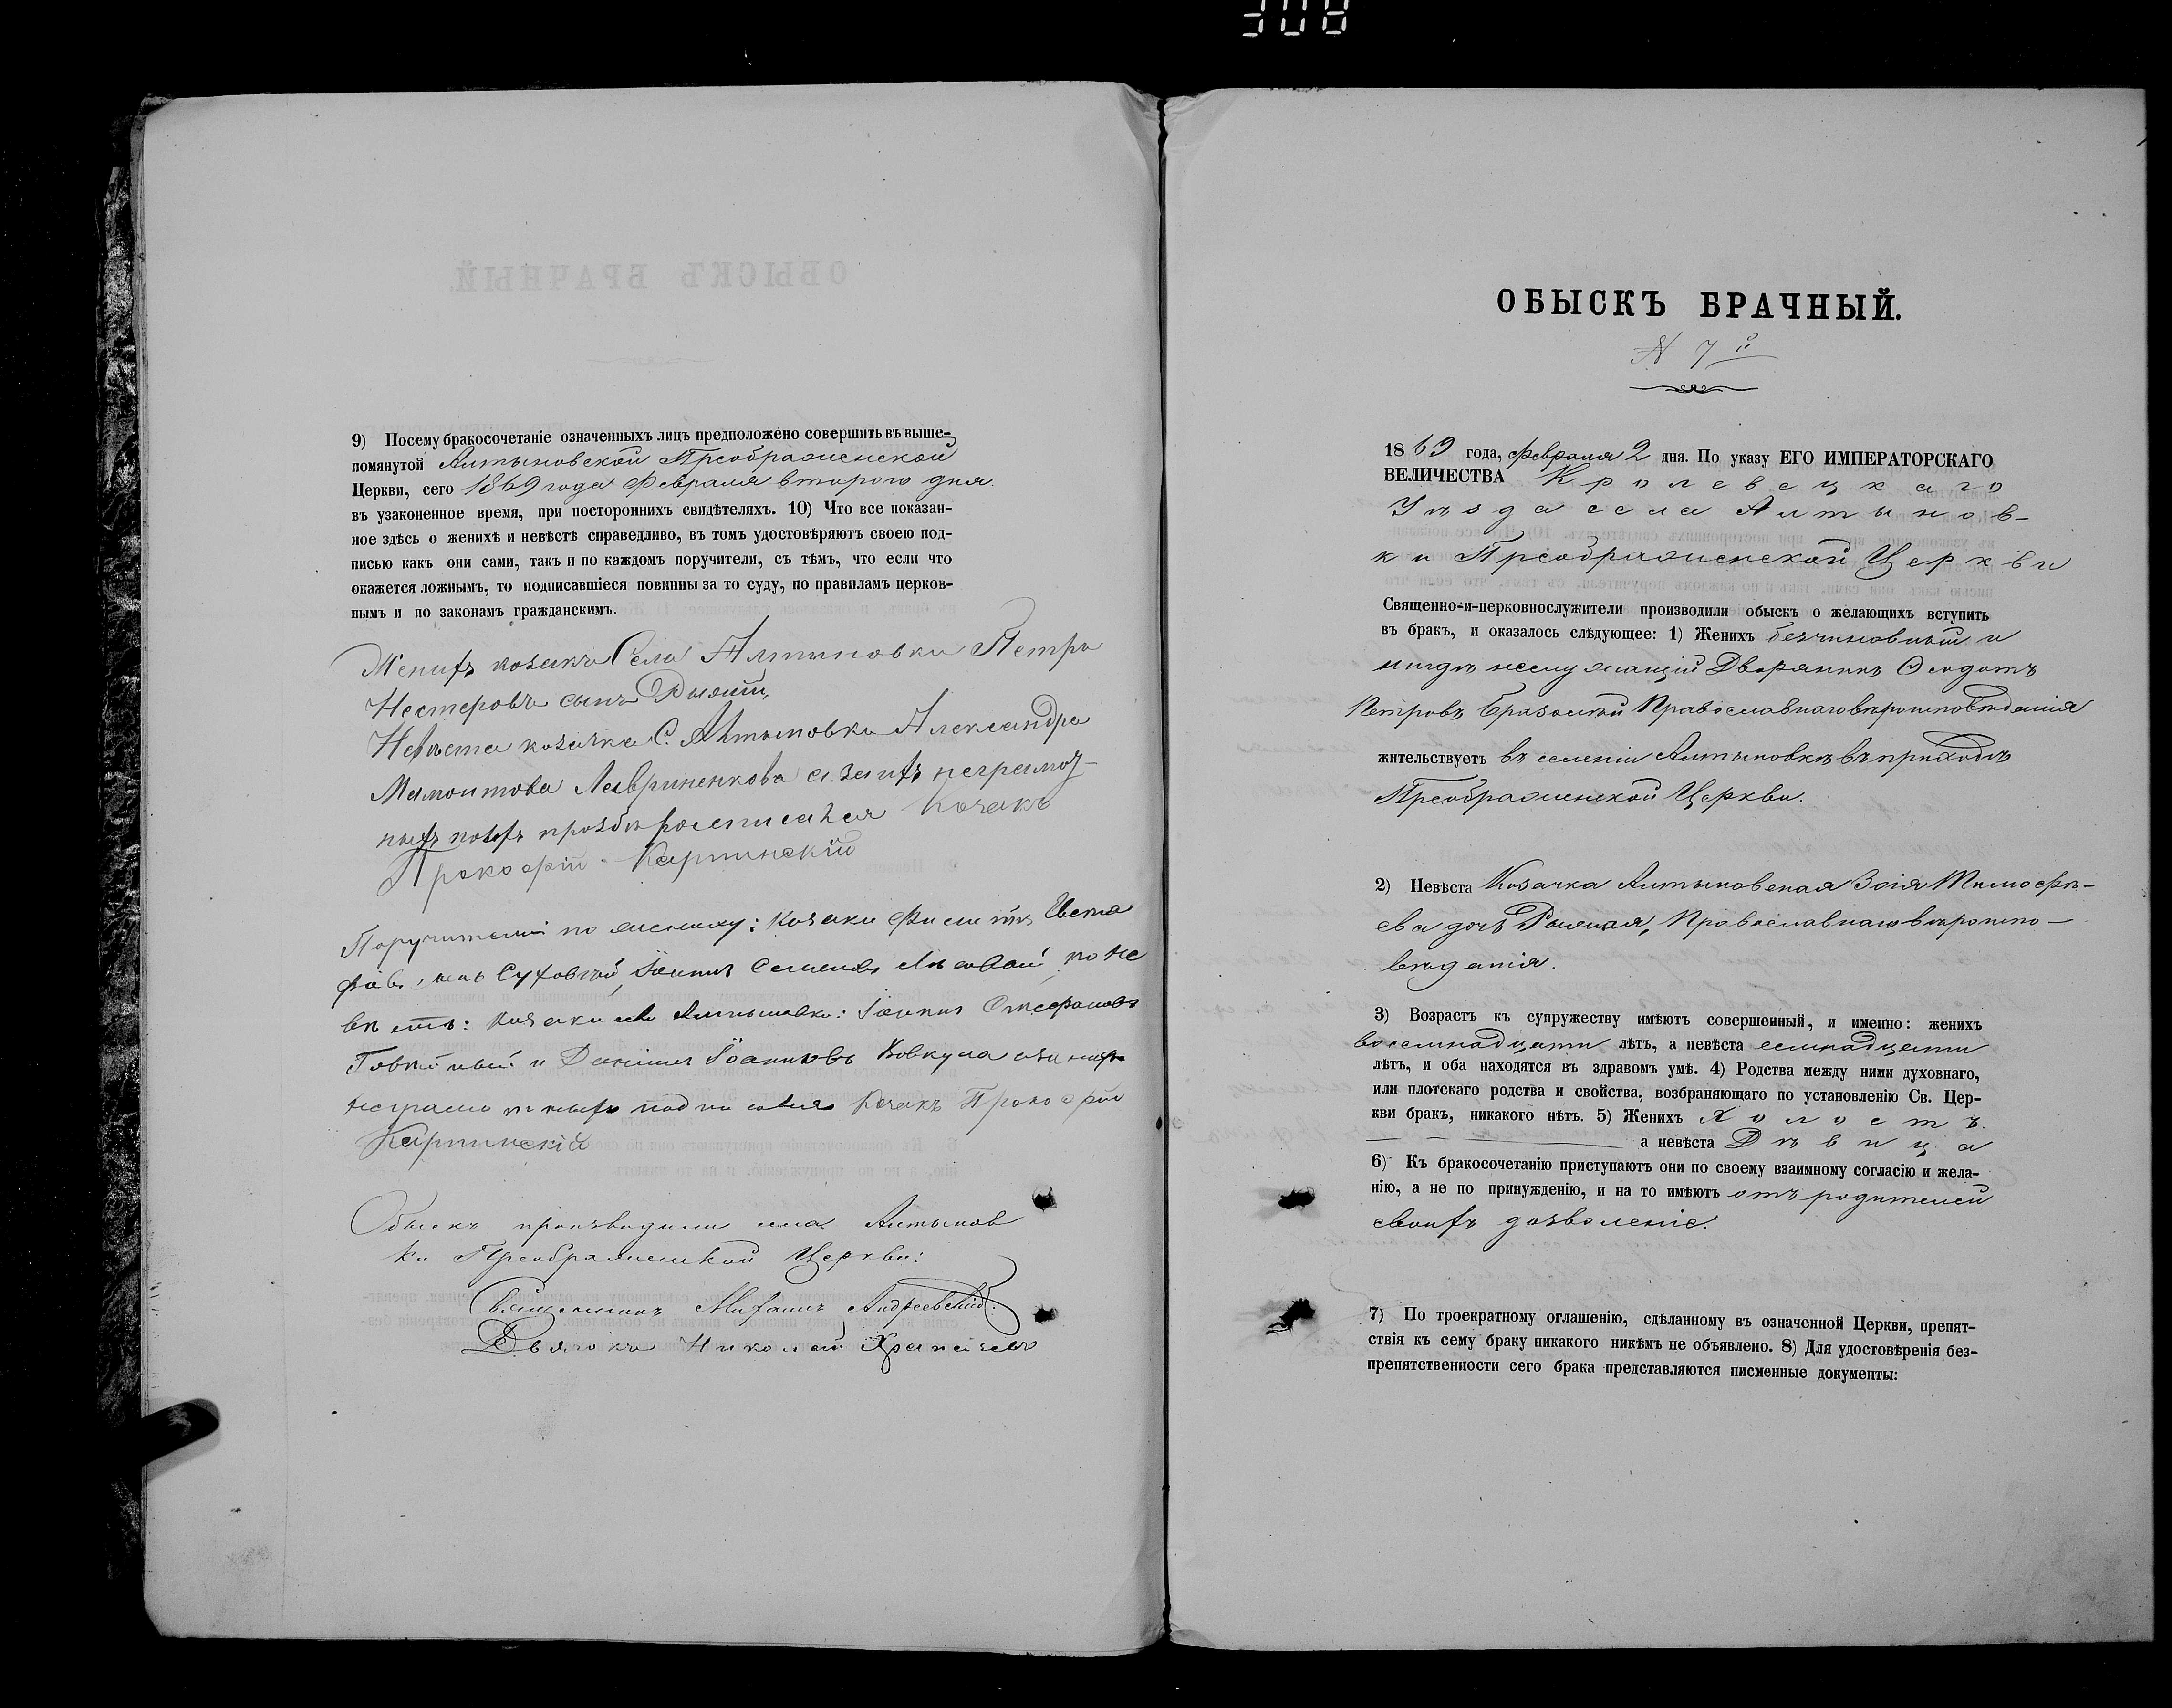 9) Посему бракосочетаніе означенныхъ лицъ предположено совершить въ выше-
помянутой Алтыновской Преображенской
Церкви, сего 1869 года Февраля второго дня
въ узаконенное время, при постороннихъ свидѣтеляхъ. 10) Что все показан-
ное здѣсь о женихѣ и невѣстѣ справедливо, въ томъ удостовѣряютъ своею под-
писью какъ они сами, такъ и по каждомъ поручители, съ тѣмъ, что если что
окажется ложнымъ, то подписавшіеся повинны за то суду, по правиламъ церков-
нымъ и по законамъ гражданскимъ.
Женихъ козакъ Села Алтиновки Петръ
Нестеровъ сынъ
Невѣста козачка С. Алтыновки Александра
Мамонтова Лавриненкова а за ихъ неграмот-
ныхъ по ихъ прозбѣ росписался козакъ
Прокофій Карпинскій
Поручители по жениху: козаки
Суховой, Іоаннъ Семеновъ по не
вѣстѣ: козаки Алтыновки: Іоаннъ Стефановъ
и Даніилъ Іоанновъ Вовкула а за нихъ
неграмотныхъ подписался козакъ Прокофій
Карпинскій
Обыскъ производили села Алтынов
ки Преображенской Церкви:
Священникъ Михаилъ Андреевскій.
Дьячокъ Николай
ОБЫСКЪ БРАЧНЫЙ.
N 7й
1869 года, Февраля 2 дня. По указу ЕГО ИМПЕРАТОРСКАГО
ВЕЛИЧЕСТВА Кролевецкаго
Уѣзда села Алтынов-
ки Преображенской Церкви
Священно-и-церковнослужители производили обыскъ о желающихъ вступить
въ бракъ, и оказалось слѣдующее: 1) Женихъ безчиновный и
нигдѣ неслужащій Дворянинъ Ѳеодотъ
Петровъ Православнаго вѣроисповѣданія
жительствуетъ въ селеніи Алтыновкѣ въ приходѣ
Преображенской Церкви.
2) Невѣста Козачка Алтыновская Зоія Тимофѣ-
ева дочь Православнаго вѣроиспо-
вѣданія.
3) Возрастъ къ супружеству имѣютъ совершенный, и именно: женихъ
восемнадцати лѣтъ, а невѣста семнадцати
лѣтъ, и оба находятся въ здравомъ умѣ. 4) Родства между ними духовнаго,
или плотскаго родства и свойства, возбраняющаго по установленію Св. Цер-
кви бракъ, никакого нѣтъ. 5) Женихъ Холостъ
а невѣста Дѣвица
6) Къ бракосочетанію приступаютъ они по своему взаимному согласію и жела-
нію, а не по принужденію, и на то имѣютъ отъ родителей
своихъ дозволеніе.
7) По троекратному оглашенію, сдѣланному въ означенной Церкви, препят-
ствія къ сему браку никакого никѣмъ не объявлено. 8) Для удостовѣренія без-
препятственности сего брака представляются писменные документы: